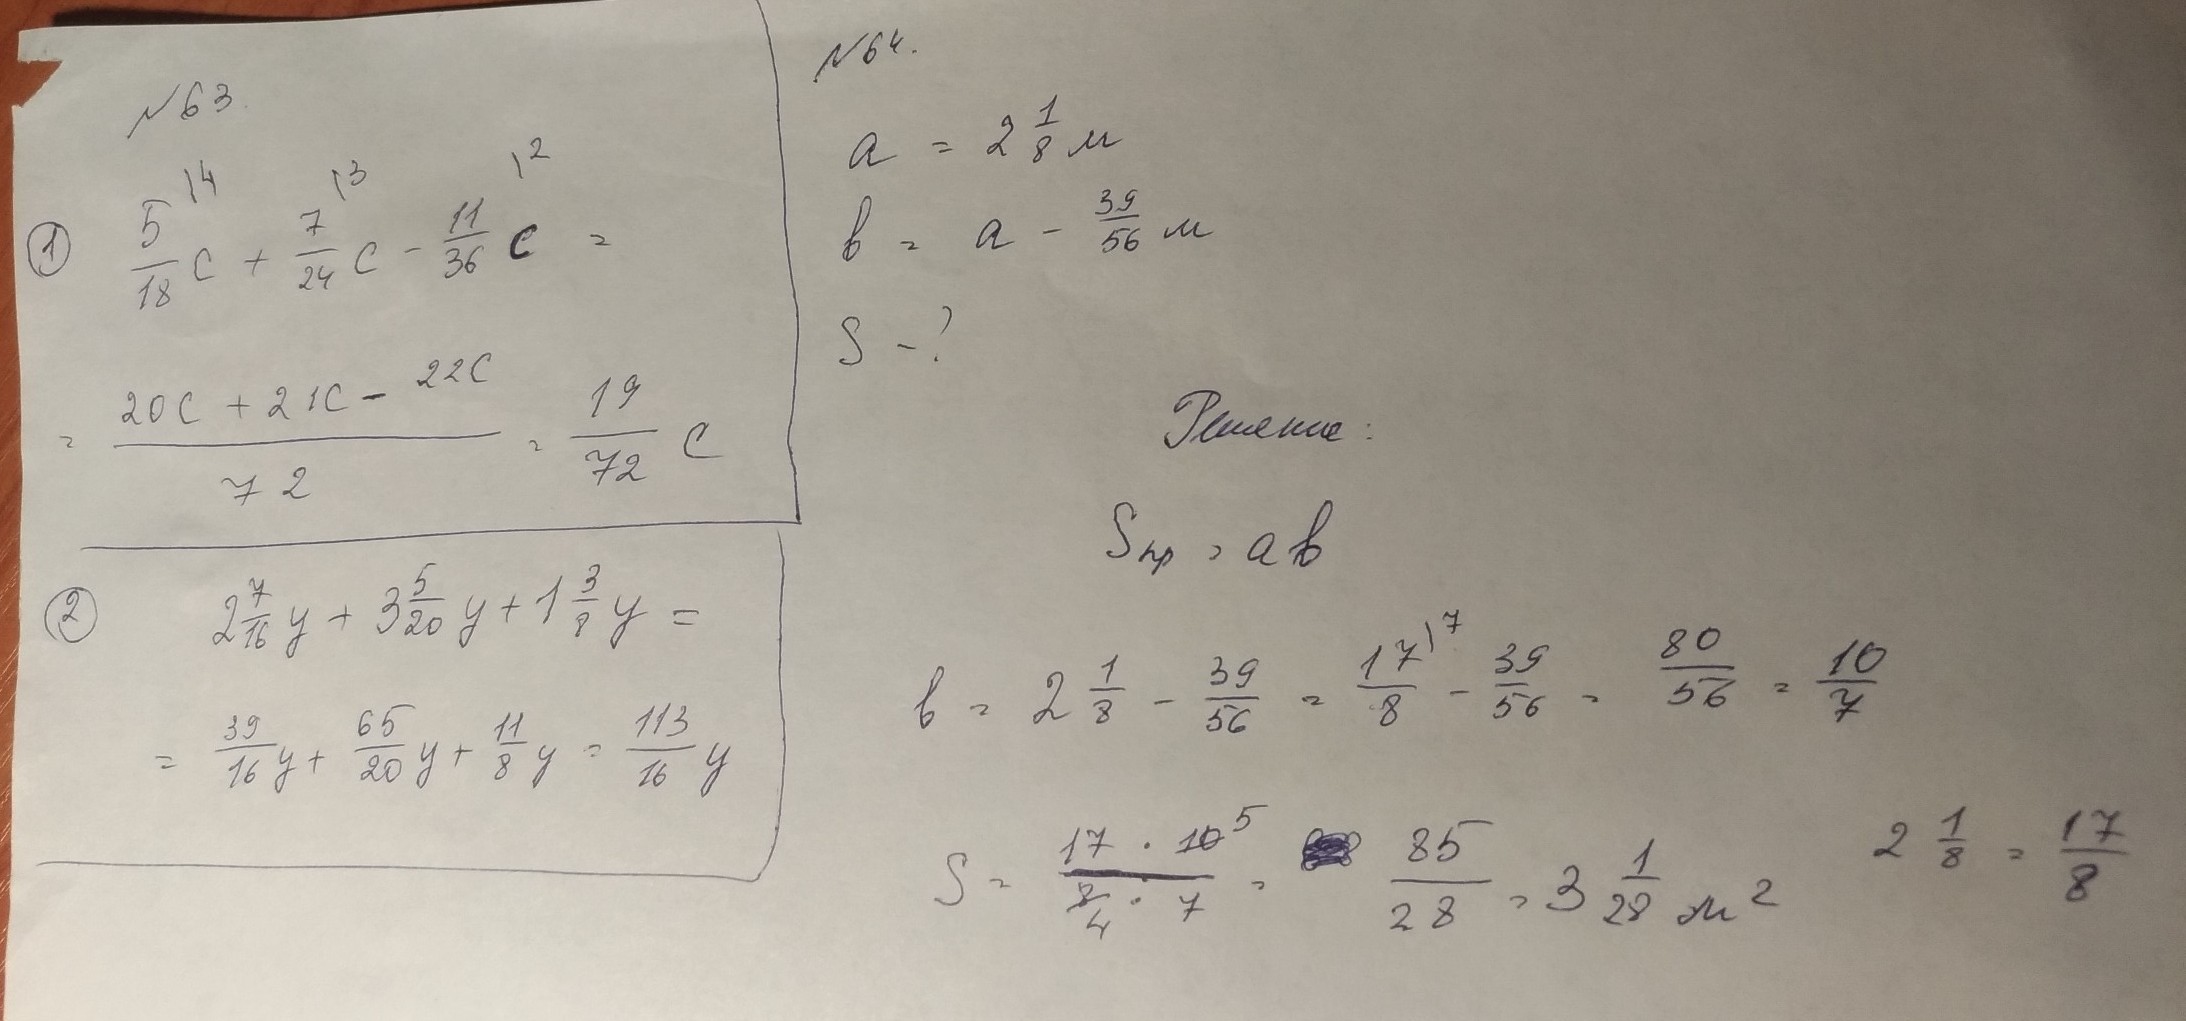 №63.
① 5/18 c |4 + 7/24 c |3 - 11/36 c |2 =
= (20c + 21c - 22c)/72 = 19/72 c
② 2 7/16 y + 3 5/20 y + 1 3/8 y =
= 39/16 y + 65/20 y + 11/8 y = 113/16 y
№64.
a = 2 1/8 м
b = a - 39/56 м
S - ?
Решение:
Sпр = ab
b = 2 1/8 - 39/56 = 17/8 |7 - 39/56 = 80/56 = 10/7
S = (17 · 10 5)/(8 4 · 7) = 85/28 = 3 1/28 м²
2 1/8 = 17/8